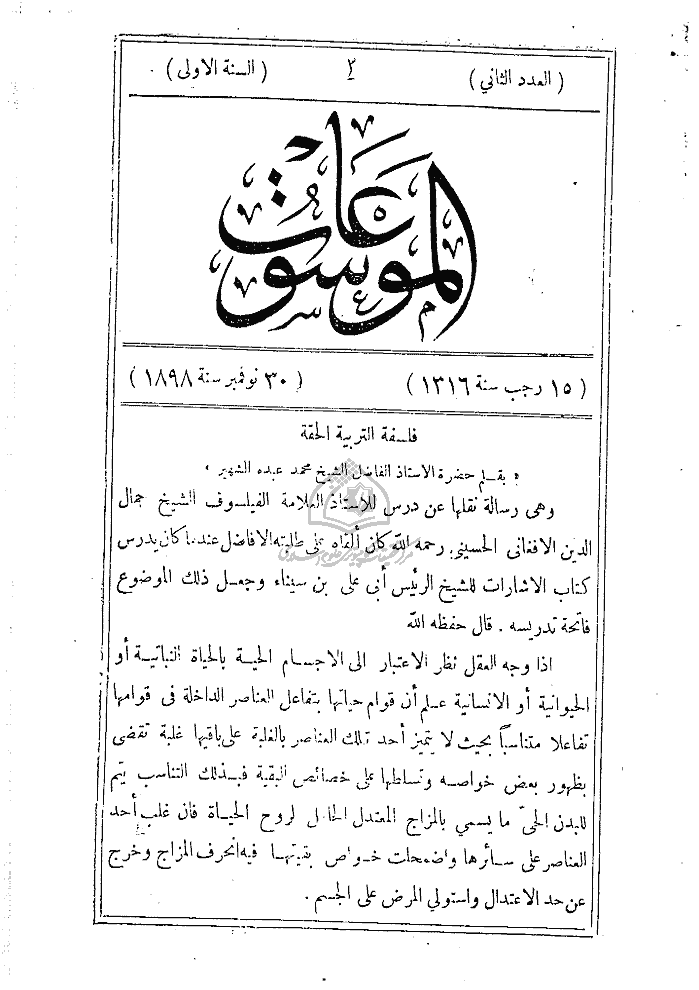 ( العدد الثاني ) ٢ ( السنة الاولى )
الموسوعات
( ١٥ رجب سنة ١٣١٦ ) ( ٣٠ نوفمبر سنة ١٨٩٨ )
فلسفة التربية الحقة
« بقلم حضرة الاستاذ الفاضل الشيخ محمد عبده الشهير »
وهى رسالة نقلها عن درس للاستاذ العلامة الفيلسوف الشيخ جمال
الدين الافغانى الحسينى رحمه الله كان ألقاه على طلبته الافاضل عندما كان يدرس
كتاب الاشارات للشيخ الرئيس أبى على بن سيناء وجعل ذلك الموضوع
فاتحة تدريسه . قال حفظه الله
اذا وجه العقل نظر الاعتبار الى الاجسام الحية بالحياة النباتية أو
الحيوانية أو الانسانية علم أن قوام حياتها بتفاعل العناصر الداخلة فى قوامها
تفاعلا متناسباً بحيث لا يتميز أحد تلك العناصر بالغلبة على باقيها غلبة تقضى
بظهور بعض خواصه وتسلطها على خصائص البقية فبذلك التناسب يتم
للبدن الحىّ ما يسمي بالمزاج المعتدل الحامل لروح الحياة فان غلب أحد
العناصر على سائرها واضمحلت خواص بقيتها فيه انحرف المزاج وخرج
عن حد الاعتدال واستولي المرض على الجسم .